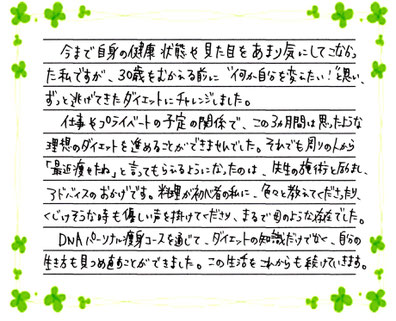 今まで自身の健康状態や見た目をあまり気にしてこなかっ
た私ですが、30歳をむかえる前に"何か自分を変えたい!"と思い、
ずっと逃げてきたダイエットにチャレンジしました。
仕事やプライベートの予定の関係で、この3ヶ月間は思ったような
理想のダイエットを進めることができませんでした。それでも周りの人から
「最近痩せたね」と言ってもらえるようになったのは、先生の施術と励まし、
アドバイスのおかげです。料理が初心者の私に、色々と教えてくださったり、
くじけそうな時も優しい声を掛けてくださり、まるで母のような存在でした。
DNAパーソナル痩身コースを通じて、ダイエットの知識だけでなく、自分の
生き方も見つめ直すことができました。この生活をこれからも続けていきます。